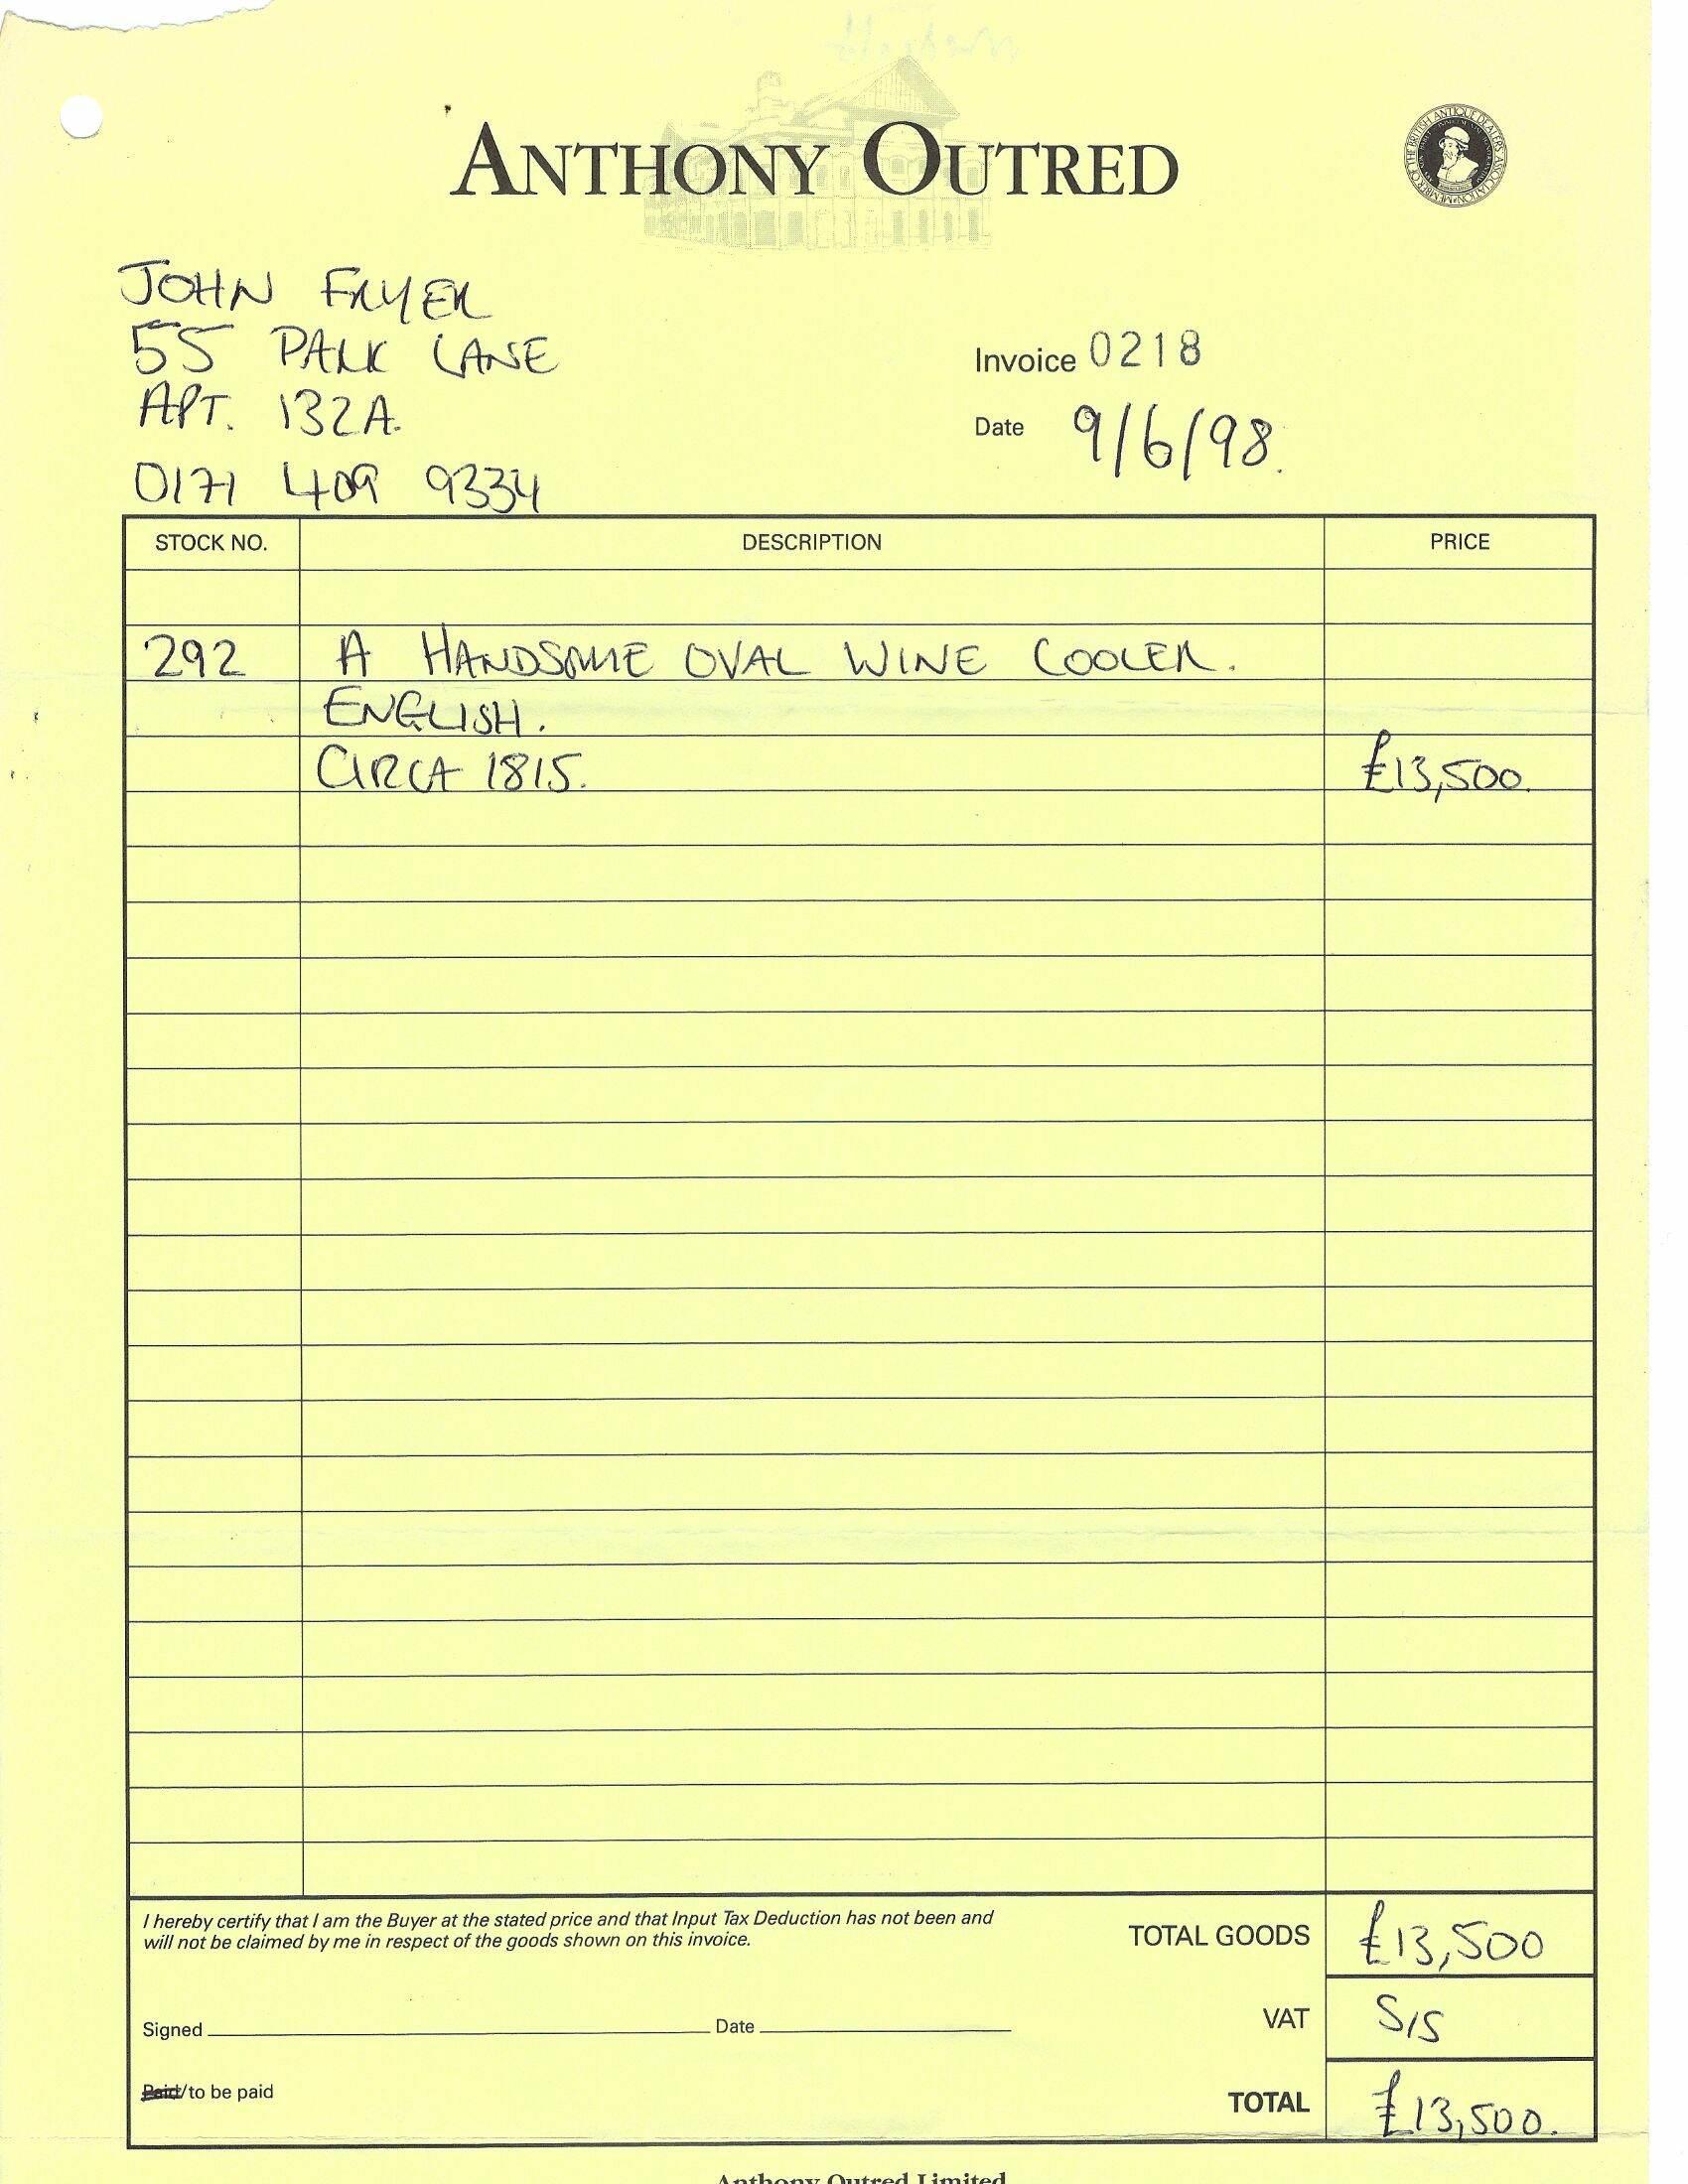 ANTHONY OUTRED
MEMBER OF THE BRITISH ANTIQUE DEALERS' ASSOCIATION
JOHN FRYER
55 PARK LANE
APT. 132A.
0171 409 9334
Invoice 0218
Date 9/6/98.
STOCK NO. DESCRIPTION PRICE
292 A HANDSOME OVAL WINE COOLER.
ENGLISH.
CIRCA 1815. £13,500.
I hereby certify that I am the Buyer at the stated price and that Input Tax Deduction has not been and
will not be claimed by me in respect of the goods shown on this invoice.
TOTAL GOODS £13,500
Signed Date
VAT S/S
Paid/to be paid
TOTAL £13,500.
Anthony Outred Limited